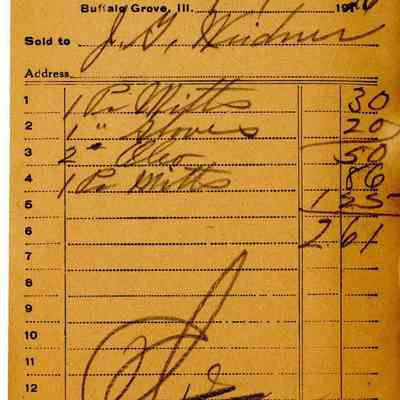 Buffalo Grove, Ill. 19
Sold to J. G. Weidner
Address
1 1 Pr Mitts 30
2 1 " Gloves 20
50
3 2 " Oleo 86
4 1 Pr Mitts 1 25
5
6 2 61
7
8
9
10
11
12